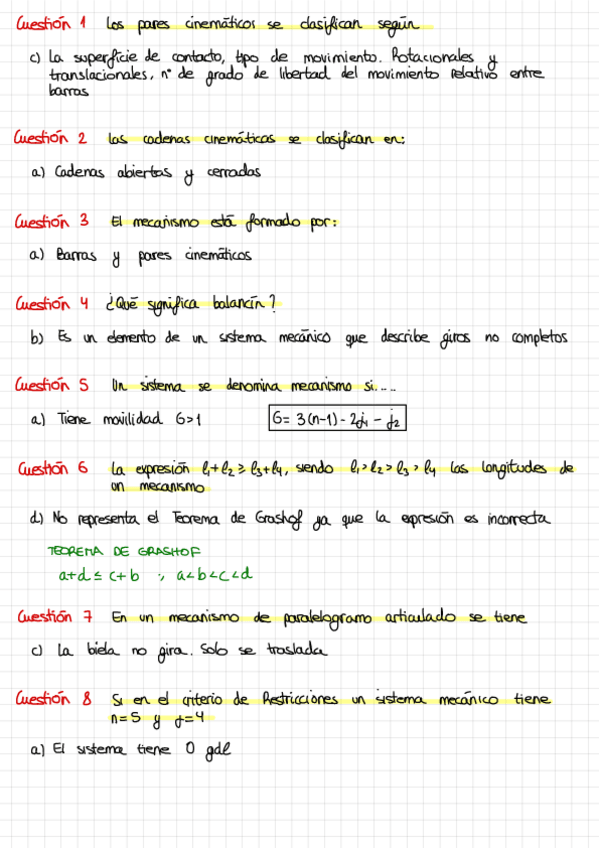 Cuestión 1 Los pares cinemáticos se clasifican según
c) La superficie de contacto, tipo de movimiento. Rotacionales y
translacionales, nº de grado de libertad del movimiento relativo entre
barras
Cuestión 2 Las cadenas cinemáticas se clasifican en:
a) Cadenas abiertas y cerradas
Cuestión 3 El mecanismo está formado por:
a) Barras y pares cinemáticos
Cuestión 4 ¿Qué significa balancín?
b) Es un elemento de un sistema mecánico que describe giros no completos
Cuestión 5 Un sistema se denomina mecanismo si....
a) Tiene movilidad G>1 G= 3(n-1) - 2j₁ - j₂
Cuestión 6 La expresión l₁+l₂ ≥ l₃+l₄, siendo l₁>l₂>l₃>l₄ las longitudes de
un mecanismo
d) No representa el Teorema de Grashof ya que la expresión es incorrecta
TEOREMA DE GRASHOF
a+d ≤ c+b ; a<b<c<d
Cuestión 7 En un mecanismo de paralelogramo articulado se tiene
c) La biela no gira. Solo se traslada
Cuestión 8 Si en el criterio de Restricciones un sistema mecánico tiene
n=5 y j=4
a) El sistema tiene 0 gdl